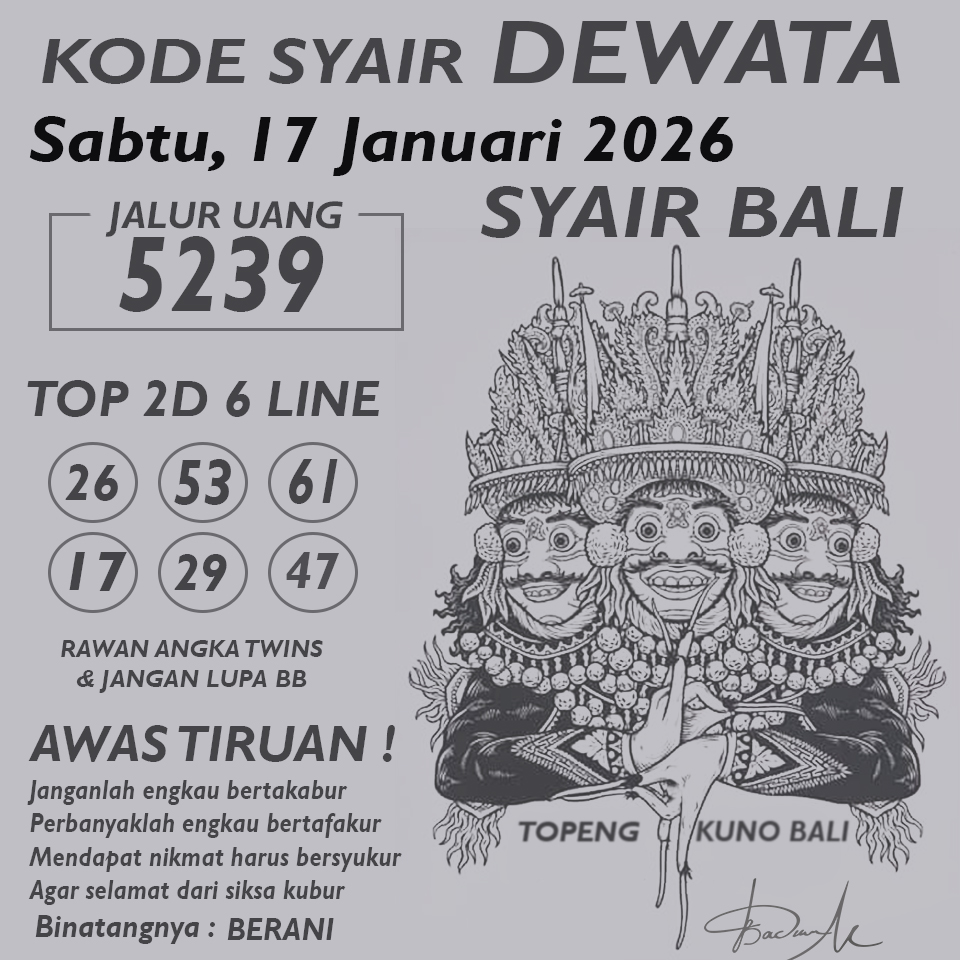 KODE SYAIR DEWATA
Sabtu, 17 Januari 2026
SYAIR BALI
JALUR UANG
5239
TOP 2D 6 LINE
26 53 61
17 29 47
RAWAN ANGKA TWINS
& JANGAN LUPA BB
AWAS TIRUAN !
Janganlah engkau bertakabur
Perbanyaklah engkau bertafakur
Mendapat nikmat harus bersyukur
Agar selamat dari siksa kubur
Binatangnya : BERANI
TOPENG KUNO BALI